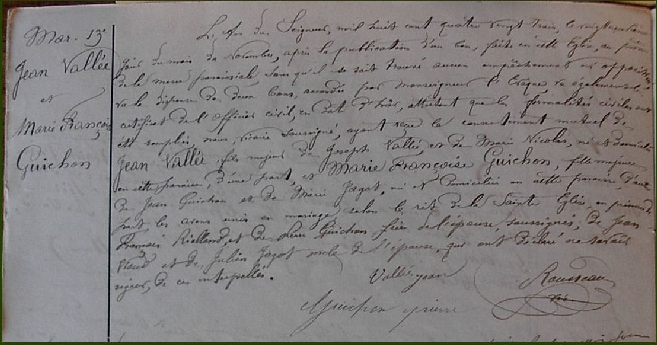 Mar. 13
Jean Vallée
et
Marie Françoise
Guichon
L'An du Seigneur, mil huit cent quatre vingt trois, le vingt
jour du mois de Novembre, après la publication d'un ban, faite en cette Eglise, au prône
de la messe paroissiale sans qu'il se soit trouvé aucun empêchement ni opposition
vu la dispense de deux bans, accordée par Monseigneur l'Evêque vu également le
certificat de l'officier civil, en date d'hier, attestant que les formalités civiles ont
été remplies, nous, vicaire soussigné, ayant reçu le consentement mutuel de
Jean Vallée, fils majeur de Joseph Vallée et de Marie Nicolas, né et domicilié
en cette paroisse, d'une part, et Marie Françoise Guichon, fille majeure
de Jean Guichon et de Marie Jagot, née et domiciliée en cette paroisse, d'autre
part les avons unis en mariage, selon le rit de la Sainte Eglise, en présence de
François Rialland, et de Pierre Guichon, frère de l'épouse, soussignés, de Jean
Viaud et de Julien Jagot oncle de l'épouse, qui ont déclaré ne savoir
signer, de ce interpellés.
Vallée jean
Rousseau
vic
Guichon pierre